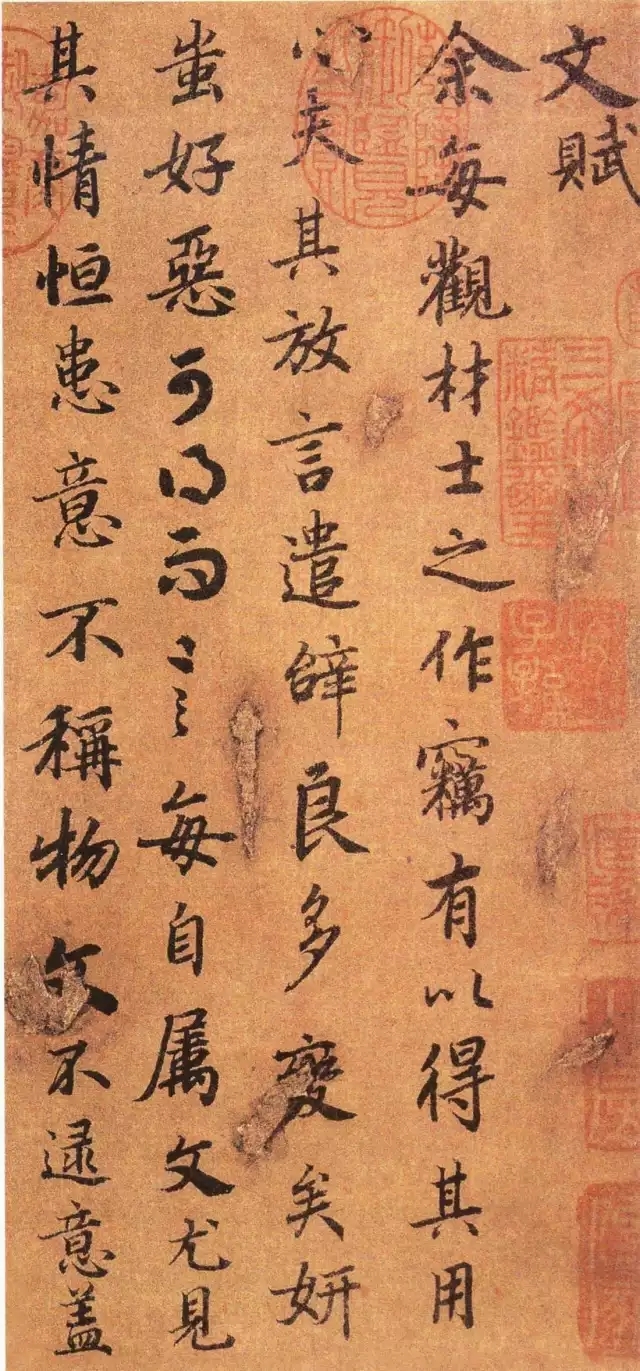 文賦
余每觀材士之作竊有以得其用
心矣其放言遣辭良多變矣妍
蚩好惡可得而言每自屬文尤見
其情恒患意不稱物文不逮意盖
三希堂
精鑑璽
宜子孫